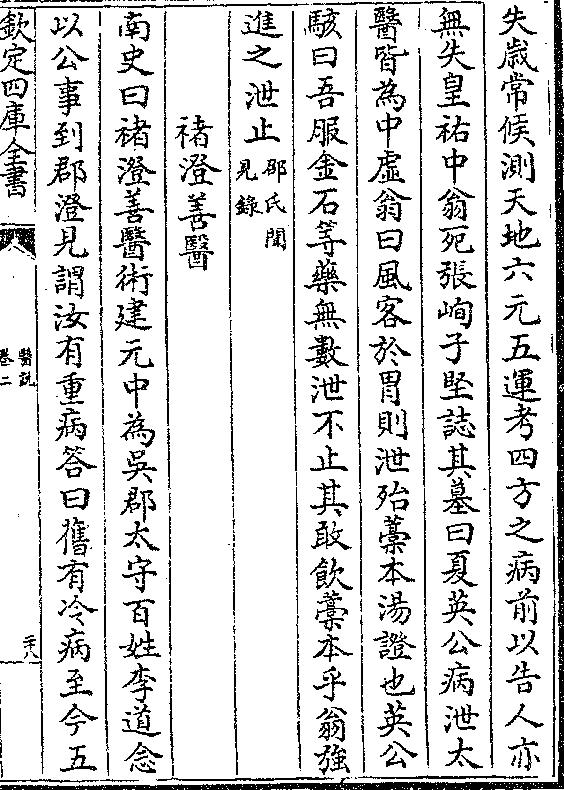 失歳常候測天地六元五運考四方之病前以告人亦
無失皇祐中翁死張峋子堅誌其墓曰夏英公病泄太
醫皆為中虚翁曰風客於胃則泄殆藁本湯證也英公
駭曰吾服金石等藥無數泄不止其敢飲藁本乎翁強
進之泄止邵氏聞見錄
禇澄善醫
南史曰禇澄善醫術建元中為吳郡太守百姓李道念
以公事到郡澄見謂汝有重病答曰舊有冷病至今五
欽定四庫全書
醫説
卷二
二十八